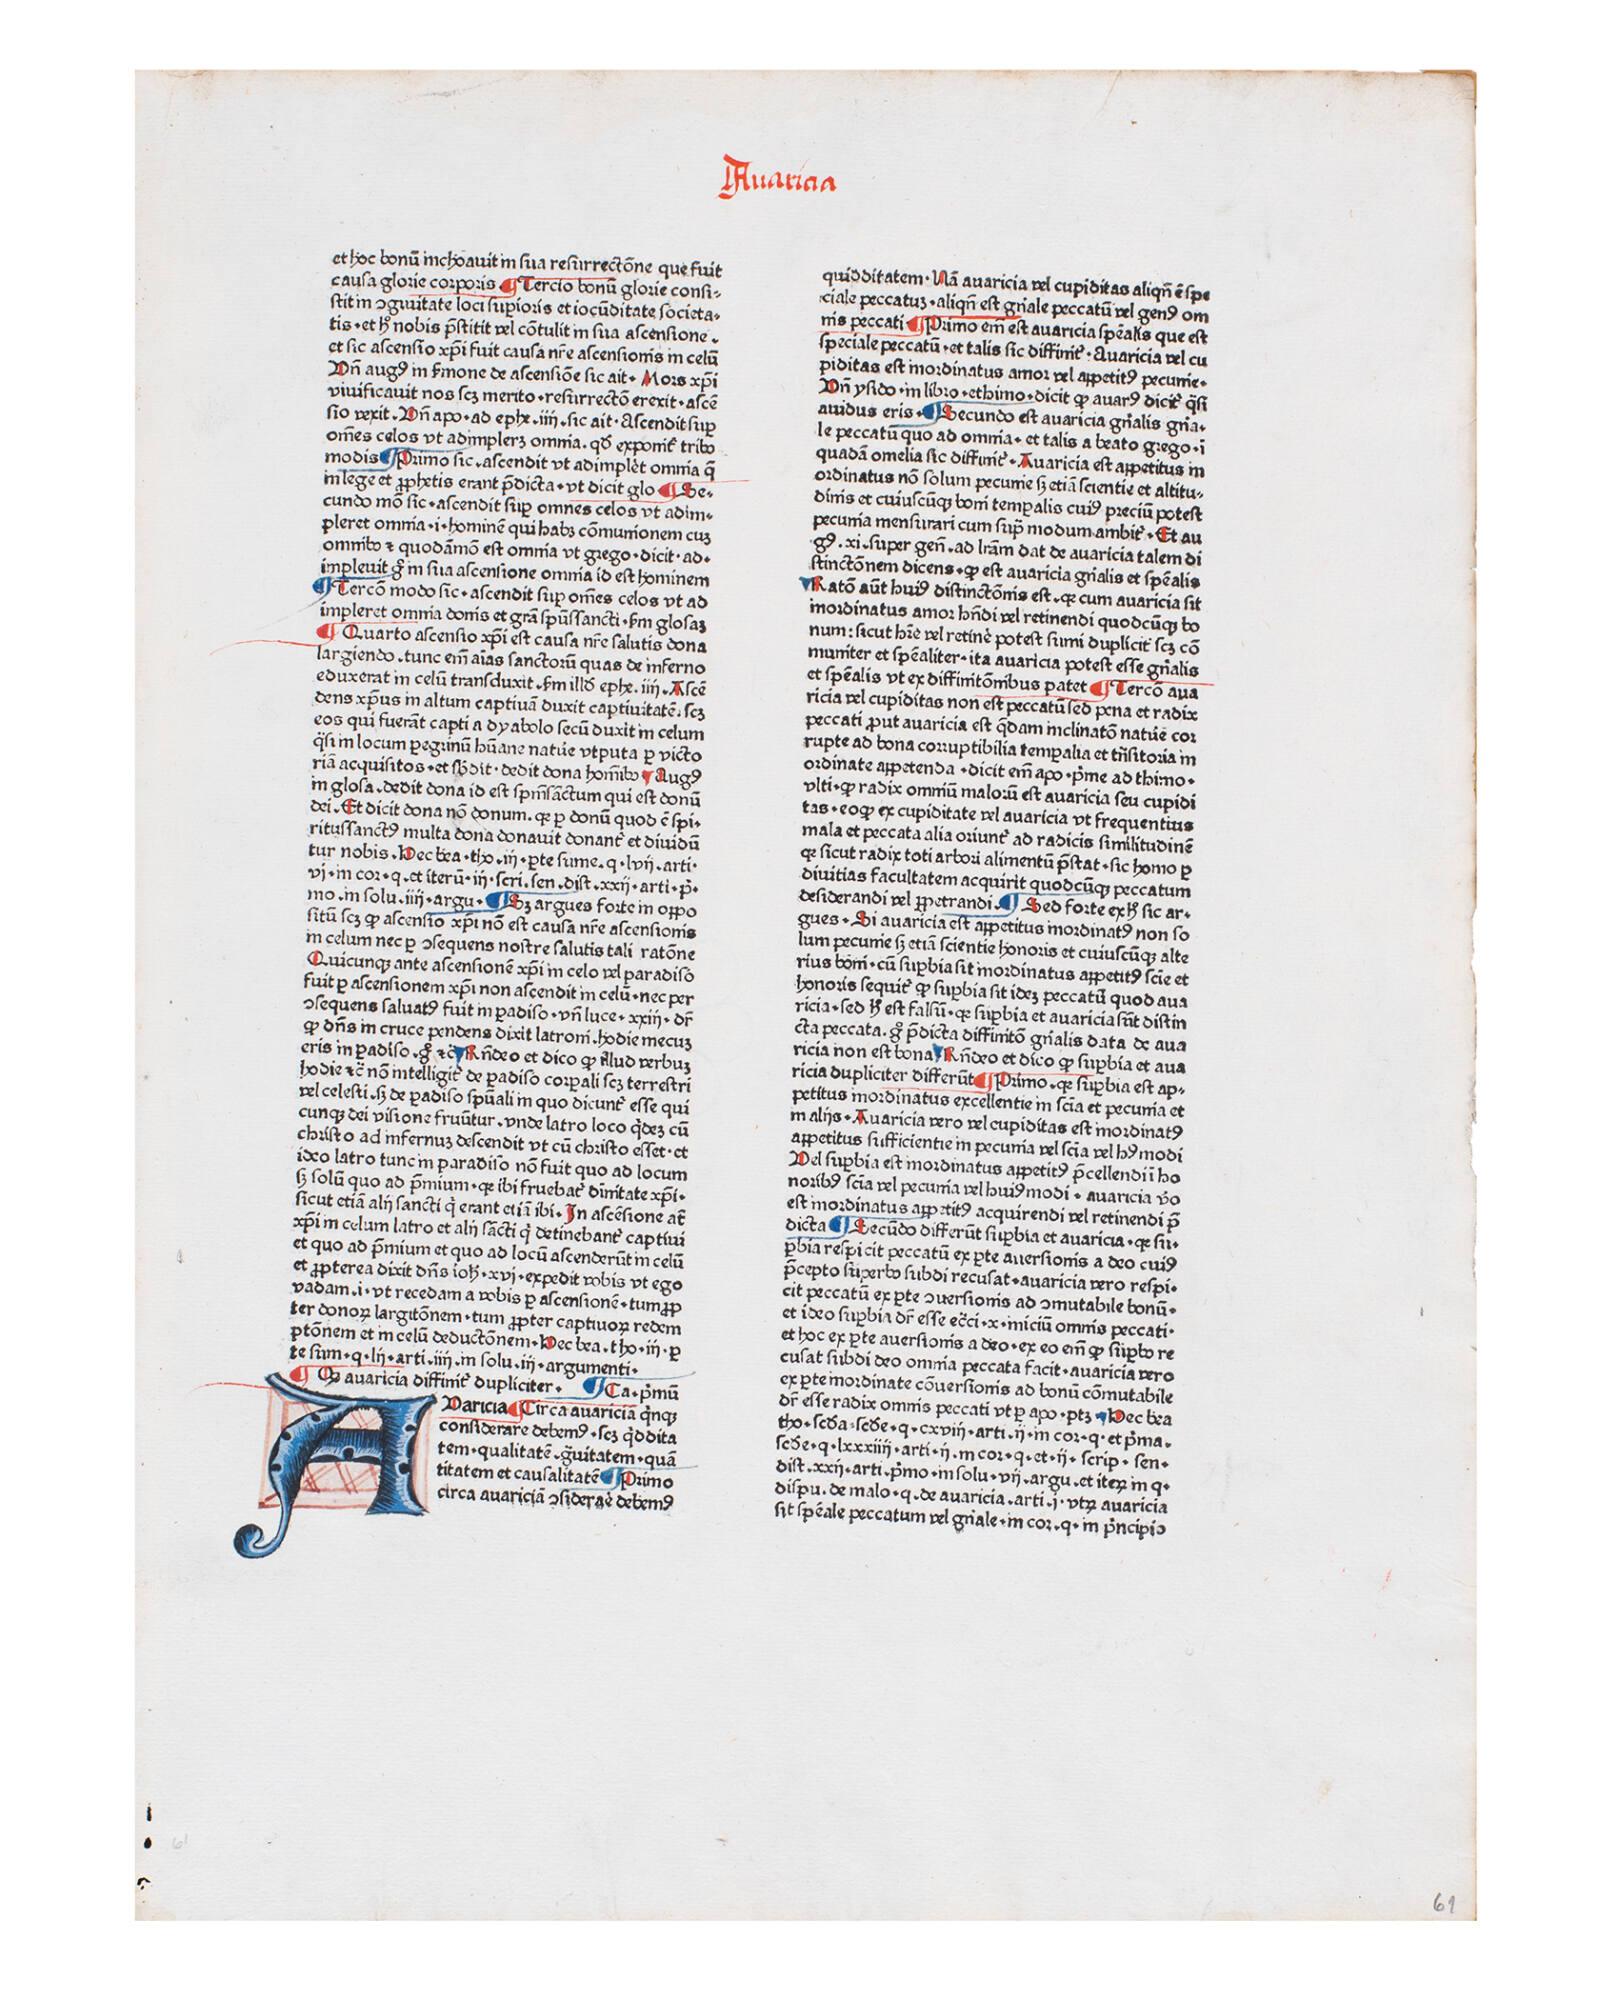 Auaricia
et hoc bonū inchoauit in sua resurrectōne que fuit
causa glorie corporis ¶ Tercio bonū glorie consi-
stit in ꝯgruitate loci supioris et iocūditate societa-
tis · et hͦ nobis p̄stitit vel cōtulit in sua ascensione ·
et sic ascensio xp̄i fuit causa nr̄e ascensionis in celū
Vn̄ augꝰ in ẜmone de ascensiōe sic ait · Mors xp̄i
viuificauit nos scꝫ merito · resurrectō erexit · ascē
sio vexit · Vn̄ apo · ad ephe · iiii · sic ait · Ascendit suꝑ
om̄es celos vt adimplerꝫ omnia · qđ exponit᷑ tribꝰ
modis ¶ Primo sic · ascendit vt adimplēt omnia q̄
in lege et ꝓphetis erant p̄dicta · vt dicit glo ¶ Se-
cundo mō sic · ascendit suꝑ omnes celos vt adim-
pleret omnia · i · hominē qui habꝫ cōmunionem cuꝫ
omnibꝰ ⁊ quodāmō est omnia vt grego · dicit · ad-
impleuit gͦ in sua ascensione omnia id est hominem
¶ Tercō modo sic · ascendit suꝑ om̄es celos vt ad
impleret omnia donis et gr̄a spūssancti · ẜm glosaꝫ
¶ Quarto ascensio xp̄i est causa nr̄e salutis dona
largiendo · tunc em̄ aīas sanctorū quas de inferno
eduxerat in celū transduxit · ẜm illđ ephe · iiii · Ascē
dens xp̄us in altum captiuā duxit captiuitatē · scꝫ
eos qui fuerāt capti a dyabolo secū duxit in celum
q̄si in locum ꝑegrinū hūane natur̄e vtputa ꝑ victo
riā acquisitos · et sb̄dit · dedit dona hoīnibꝰ Augꝰ
in glosa · dedit dona id est spm̄sanctum qui est donū
dei · Et dicit dona nō donum · qꝛ ꝑ donū quod ē spi-
ritussanctꝰ multa dona donauit donant᷑ et diuidū
tur nobis · Hec bea · tho · iii · ꝑte sume · q · lvii · arti ·
vj · in cor · q · et iterū · iii · scri · sen · dist · xxii · arti · p̄-
mo · in solu · iiii · argu · ¶ Sꝫ argues forte in oppo
sitū scꝫ ꝙ ascensio xp̄i nō est causa nr̄e ascensionis
in celum nec ꝑ ꝯsequens nostre salutis tali ratōne
Quicunqꝫ ante ascensionē xp̄i in celo vel paradiso
fuit ꝑ ascensionem xp̄i non ascendit in celū · nec per
ꝯsequens saluatꝰ fuit in padiso · vn̄ luce · xxiii · dr̄
ꝙ dn̄s in cruce pendens dixit latroni · hodie mecuꝫ
eris in padiso · gͦ ⁊c̄ Rn̄deo et dico ꝙ illud verbuꝫ
hodie ⁊c̄ nō intelligit᷑ de padiso corpali scꝫ terrestri
vel celesti · sꝫ de padiso spūali in quo dicunt᷑ esse qui
cunqꝫ dei visione fruūtur · vnde latro loco q̄deꝫ cū
christo ad infernuꝫ descendit vt cū christo esset · et
ideo latro tunc in paradiso nō fuit quo ad locum
sꝫ solū quo ad p̄mium · qꝛ ibi fruebat᷑ diuinitate xp̄i ·
sicut etiā alij sancti q̄ erant etiā ibi · In ascēsione at̄
xp̄i in celum latro et alij sācti q̄ detinebant᷑ captiui
et quo ad p̄mium et quo ad locū ascenderūt in celū
et ꝓpterea dixit dn̄s ioh̄ · xvi · expedit vobis vt ego
vadam · i · vt recedam a vobis ꝑ ascensionē · tum ꝓp
ter donoꝝ largitōnem · tum ꝓpter captiuoꝝ redem
ptōnem et in celū deductōnem · Hec bea · tho · iii · ꝑ
te sum · q · lij · arti · iiii · in solu · iii · argumenti ·
¶ Qꝫ auaricia diffinit᷑ dupliciter · ¶ Ca · p̄mū
AVaricia ¶ Circa auariciā q̄nqꝫ
considerare debemꝰ · scꝫ q̄ddita
tem · qualitatē · g̈uitatem · quā
titatem et causalitatē ¶ Primo
circa auariciā ꝯsiderar̄e debemꝰ
quidditatem · Nā auaricia vel cupiditas aliqn̄ ē spe
ciale peccatuꝫ · aliqn̄ est gn̄ale peccatū vel genꝰ om
nis peccati ¶ Primo em̄ est auaricia spēalis que est
speciale peccatū · et talis sic diffinit᷑ · Auaricia vel cu
piditas est inordinatus amor vel appetitꝰ pecunie ·
Vn̄ ysido · in libro · ethimo · dicit ꝙ auarꝰ dicit᷑ q̄si
auidus eris · ¶ Secundo est auaricia gn̄alis gn̄a-
le peccatū quo ad omnia · et talis a beato grego · ī
quadā omelia sic diffinit᷑ · Auaricia est appetitus in
ordinatus nō solum pecunie sꝫ etiā scientie et altitu-
dinis et cuiuscūqꝫ boni tempalis cuiꝰ preciū potest
pecunia mensurari cum supͣ modum ambit᷑ · Et au
gꝰ · xi · super gen̄ · ad lr̄am dat de auaricia talem di
stinctōnem dicens · ꝙ est auaricia gn̄alis et spēalis
Ratō aūt huiꝰ distinctōnis est · qꝛ cum auaricia sit
inordinatus amor hn̄di vel retinendi quodcūqꝫ bo
num : sicut hr̄e vel retinēr potest sumi duplicit᷑ scꝫ cō
muniter et spēaliter · ita auaricia potest esse gn̄alis
et spēalis vt ex diffinitōnibus patet ¶ Tercō aua
ricia vel cupiditas non est peccatū sed pena et radix
peccati ꝓut auaricia est q̄dam inclinatō natur̄e cor
rupte ad bona corruptibilia tempalia et trn̄sitoria in
ordinate appetenda · dicit em̄ apo · p̄me ad thimo ·
vlti · ꝙ radix omniū maloꝝ est auaricia seu cupidi
tas · eoꝙ ex cupiditate vel auaricia vt frequentius
mala et peccata alia oriunt᷑ ad radicis similitudinē
qꝛ sicut radix toti arbori alimentū p̄stat · sic homo ꝑ
diuitias facultatem acquirit quodcūqꝫ peccatum
desiderandi vel ꝑpetrandi · ¶ Sed forte ex hͦ sic ar-
gues · Si auaricia est appetitus inordinatꝰ non so
lum pecunie sꝫ etiā scientie honoris et cuiuscūqꝫ alte
rius boni · cū supbia sit inordinatus appetitꝰ scīe et
honoris sequit᷑ ꝙ supbia sit ideꝫ peccatū quod aua
ricia · sed hͦ est falsū · qꝛ supbia et auaricia sūt distin
cta peccata · gͦ p̄dicta diffinitō gn̄alis data de aua
ricia non est bona Rn̄deo et dico ꝙ supbia et aua
ricia dupliciter differūt ¶ Primo · qꝛ supbia est ap-
petitus inordinatus excellentie in scīa et pecunia et
in alijs · Auaricia vero vel cupiditas est inordinatꝰ
appetitus sufficientie in pecunia vel scīa vel hꝰmodi
Vel supbia est inordinatus appetitꝰ p̄cellendi ī ho
noribꝰ scīa vel pecunia vel huiꝰmodi · auaricia v̄o
est inordinatus appetitꝰ acquirendi vel retinendi p̄
dicta ¶ Secūdo differūt supbia et auaricia · qꝛ su-
pbia respicit peccatū ex ꝑte auersionis a deo cuiꝰ
p̄cepto supbꝰ subdi recusat · auaricia vero respi-
cit peccatū ex ꝑte ꝯuersionis ad ꝯmutabile bonū ·
et ideo supbia dr̄ esse ecc̄i · x · iniciū omnis peccati ·
et hoc ex ꝑte auersionis a deo · ex eo em̄ ꝙ supbꝰ re
cusat subdi deo omnia peccata facit · auaricia vero
ex ꝑte inordinate cōuersionis ad bonū cōmutabile
dr̄ esse radix omnis peccati vt ꝑ apo · ptꝫ Hec bea
tho · scđa · scđe · q · cxviij · arti · ij · in cor · q · et p̄ma ·
scđe · q · lxxxiiii · arti · ij · in cor · q · et · ij · scrip · sen ·
dist · xxii · arti · p̄mo · in solu · vij · argu · et iteꝝ in q ·
dispu · de malo · q · de auaricia · arti · j · vtꝝ auaricia
sit spēale peccatum vel gn̄ale · in cor · q · in p̄ncipio
61
61